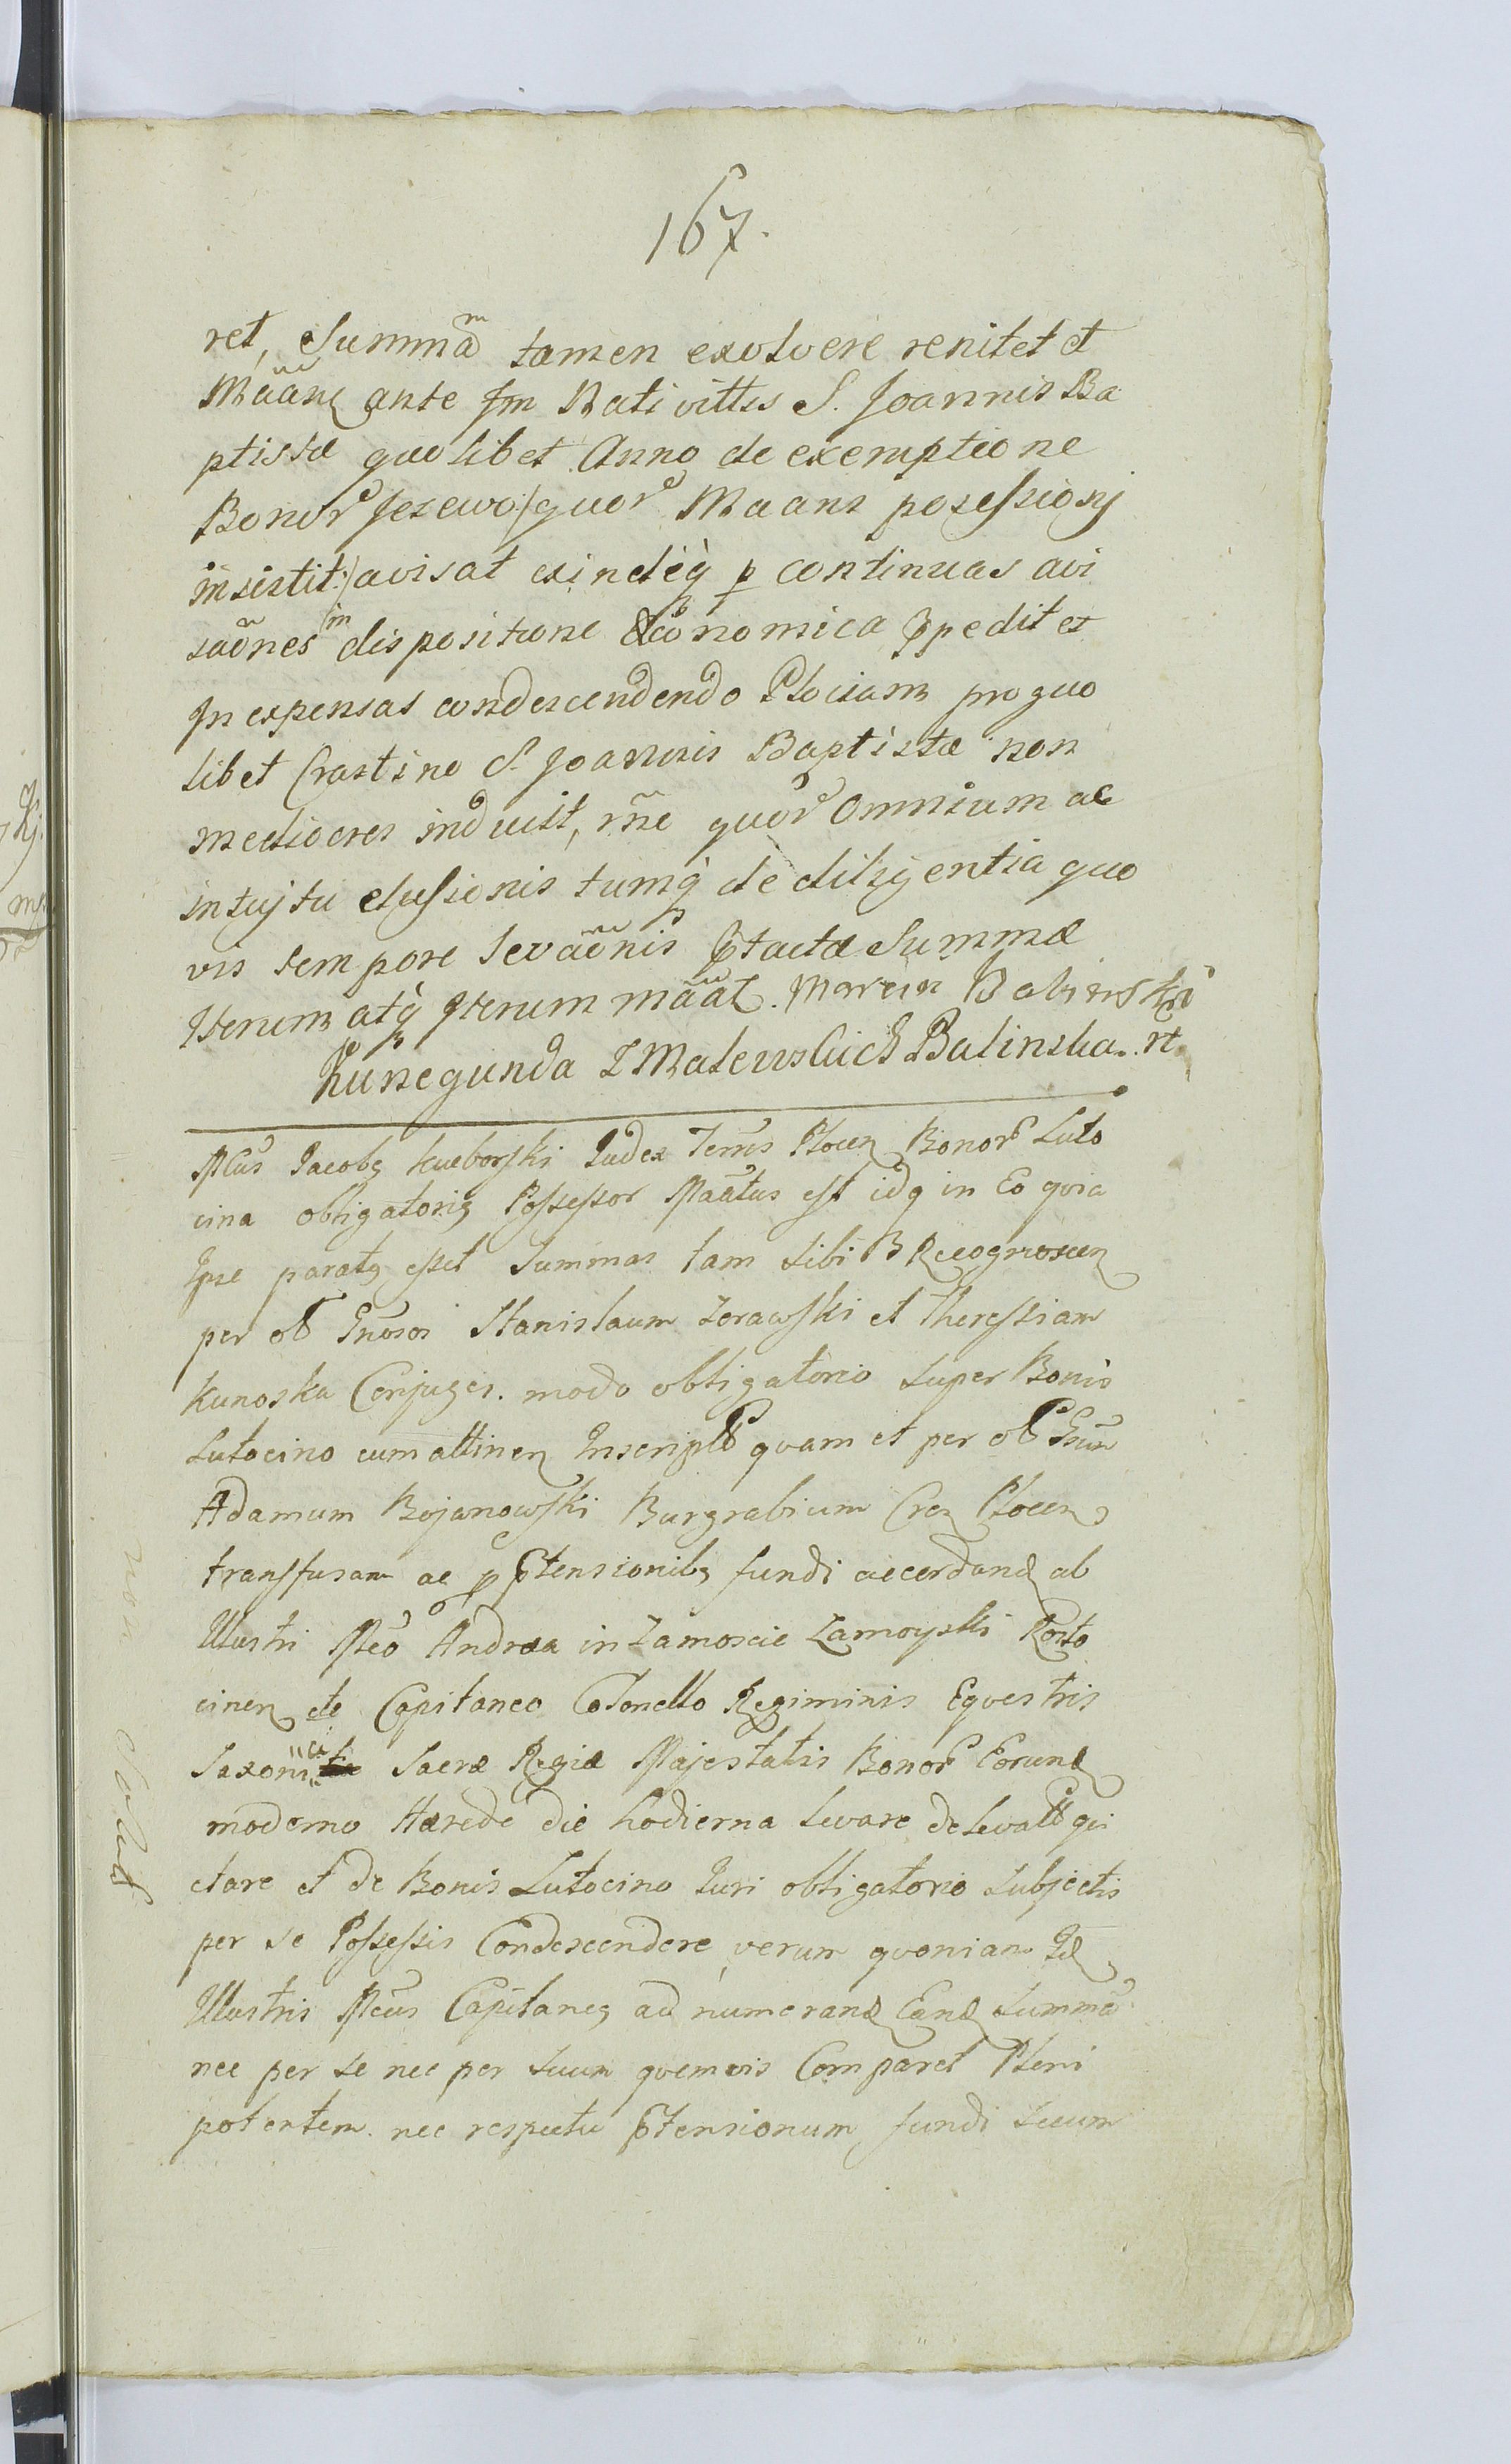 167.
ret, Summam tamen exolvere renitet et
Mãang ante Fm Nativittis S. Joannis Ba
ptistæ quolibet Anno de exemptione
Bonor Jezewo /quor Maans possessionj
insistit:/ avisat exindeq̀ p continuas avi
saões in dispositione Œconomica ꝓpedit et
Jn expensas condescendendo Plociam pro quo
libet Crastino S. Joannis Baptistæ non
mediocres induit, rñe quor omnium ac
intujtu elusionis tumq̀ de diligentia quo
vis tempore levaõnis ptactæ Summæ
Iterum atq̀ Iterum mãat. Marcin Balinski
Kunegunda Z Malewskich Balinska. rt
Mcus Jacobg Kueborski Judex Terris Plocen Bonor Luto
cina obligatorig Possessor Maãtus est idq in Eo quia
Ipse paratg esset Summas tam sibi B Recognoscen
per ol Gnosos Stanislaum Zerawski et Theressiam
Kunoska Conjuges. modo obligatorio super Bonis
Lutocino cum attinen Inscript quam et per ol Gnum
Adamum Bojanowski Burgrabium Cren Plocen
transfusam ac p ptensionibg fundi accordand ab
Illustri Mco Andrea in Zamoscie Zamoyski Rosto
cinen etc Capitaneo Colonello Regiminis Equestris
Saxonici Sacræ Regiæ Majestatis Bonor Eorund
moderno Hærede die hodierna levare de levatt qui
ctare et de Bonis Lutocino Juri obligatorio subjectis
per se Possessis Condescendere verum quoniam Id
Illustris Mcus Capitaneg ad numerand Eand Summã
nec per se nec per suum quemvis Comparet Pleni
potentem. nec respectu ptensionum fundi secum
non solut